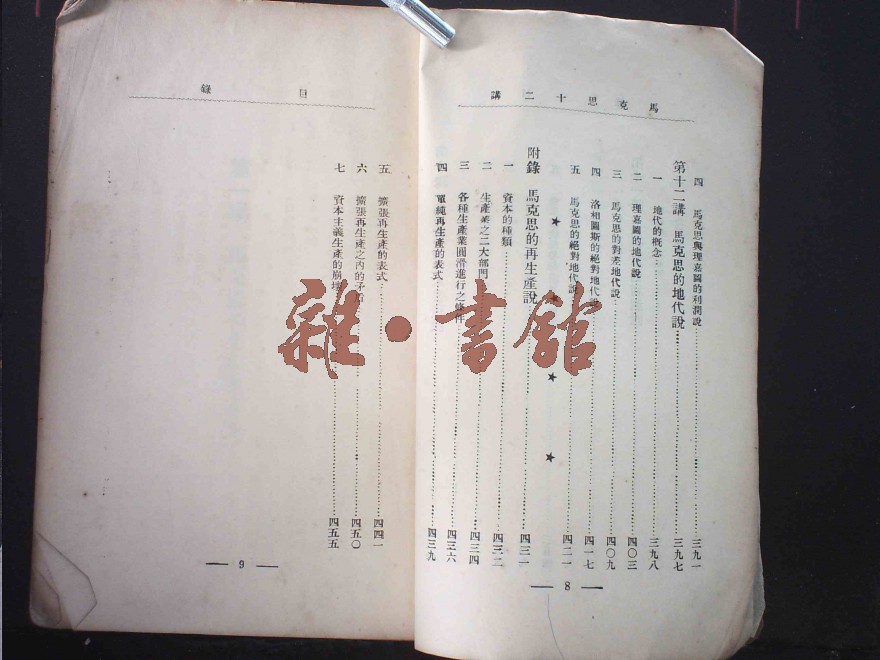 馬克思十二講
四 馬克思與理嘉圖的利潤說……三九一
第十二講 馬克思的地代說……三九七
一 地代的概念……三九八
二 理嘉圖的地代說……四〇三
三 馬克思的對差地代說……四〇九
四 洛相圖斯的絕對地代說……四一七
五 馬克思的絕對地代說……四二一
★ ★ ★ ★
附錄 馬克思的再生產說……四三一
一 資本的種類……四三二
二 生產業之二大部門……四三四
三 各種生產業圓滑進行之條件……四三六
四 單純再生產的表式……四三九
— 8 —
目錄
五 擴張再生產的表式……四四一
六 擴張再生產之內的矛盾……四五〇
七 資本主義生產的崩壞……四五五
— 9 —
雜·書館